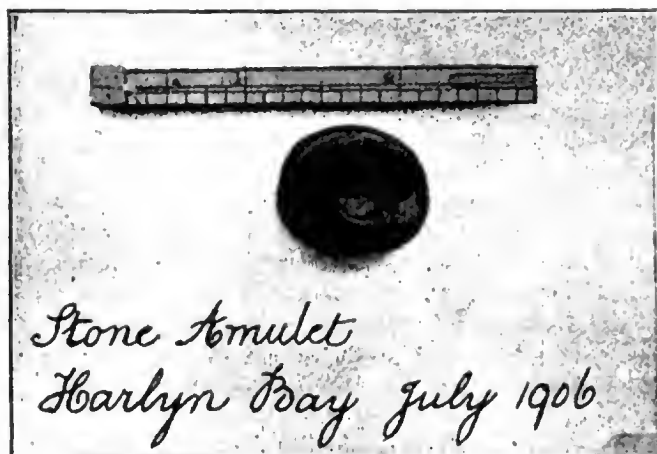 Stone Amulet
Harlyn Bay July 1906